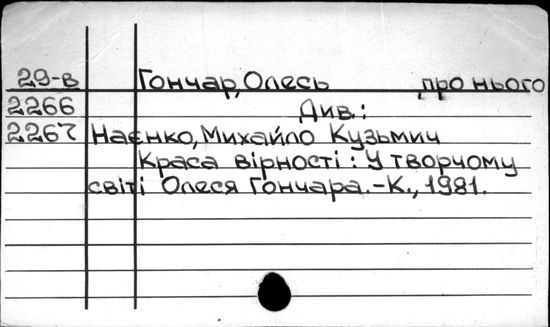 29-в Гончар, Олесь про нього
2266 Див.:
2267 Наєнко, Михайло Кузьмич
Краса вірності: У творчому
світі Олеся Гончара.-К., 1981.